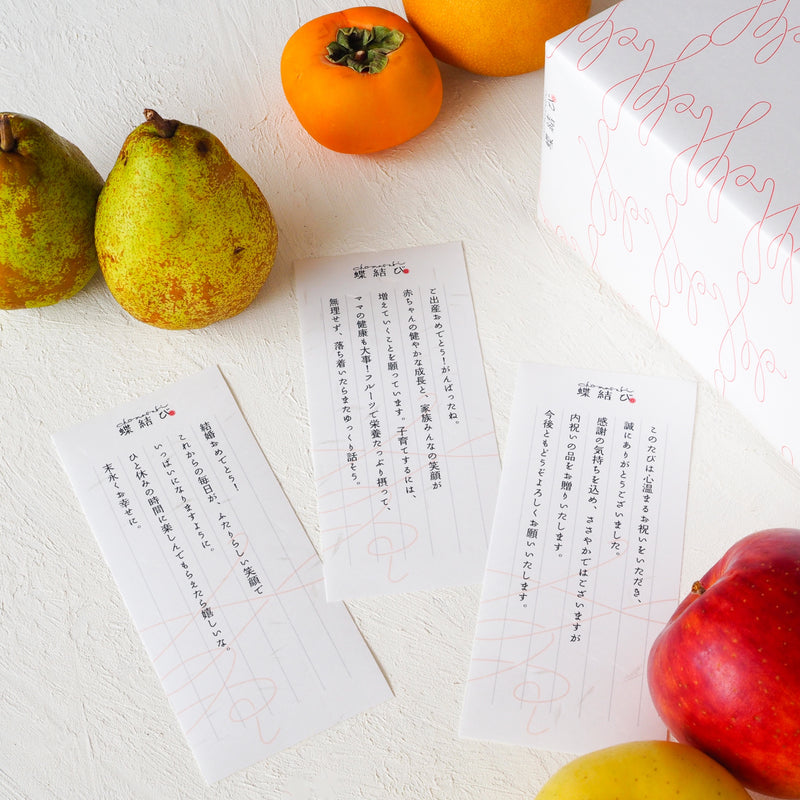 chomusubi
蝶結び
結婚おめでとう！
これからの毎日が、ふたりらしい笑顔で
いっぱいになりますように。
ひと休みの時間に楽しんでもらえたら嬉しいな。
末永くお幸せに。
chomusubi
蝶結び
ご出産おめでとう！がんばったね。
赤ちゃんの健やかな成長と、家族みんなの笑顔が
増えていくことを願っています。子育てするには、
ママの健康も大事！フルーツで栄養たっぷり摂って、
無理せず、落ち着いたらまたゆっくり話そう。
chomusubi
蝶結び
このたびは心温まるお祝いをいただき、
誠にありがとうございました。
感謝の気持ちを込め、ささやかではございますが
内祝いの品をお贈りいたします。
今後ともどうぞよろしくお願いいたします。
蝶結び